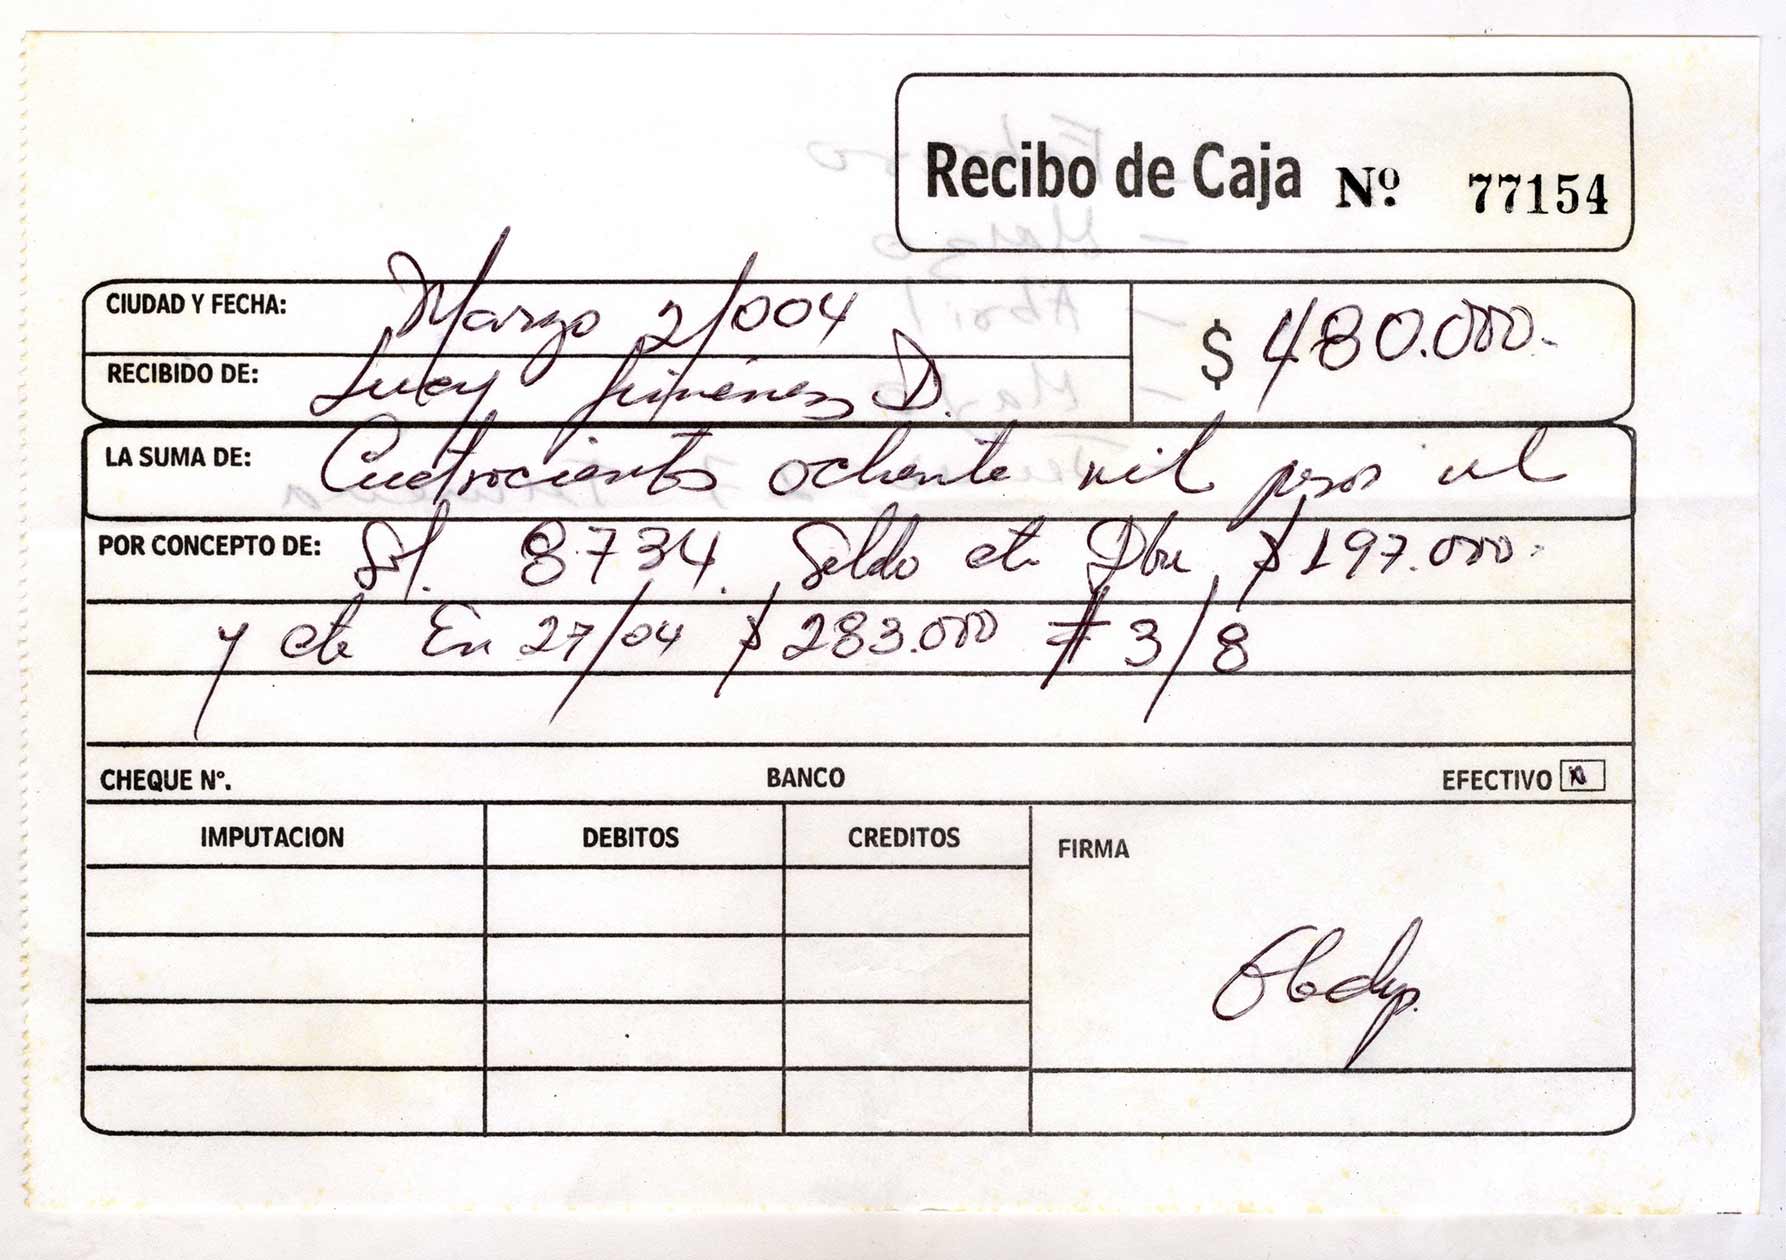 Recibo de Caja Nº 77154
CIUDAD Y FECHA: Marzo 2/004
$ 480.000.
RECIBIDO DE: Lucy Jimenez D.
LA SUMA DE: Cuatrocientos ochenta mil pesos ml
POR CONCEPTO DE: 8734. Saldo cta Dbre $197.000
y cta En 27/04 $283.000 # 3/8
CHEQUE Nº. BANCO EFECTIVO
IMPUTACION DEBITOS CREDITOS FIRMA
Gladys